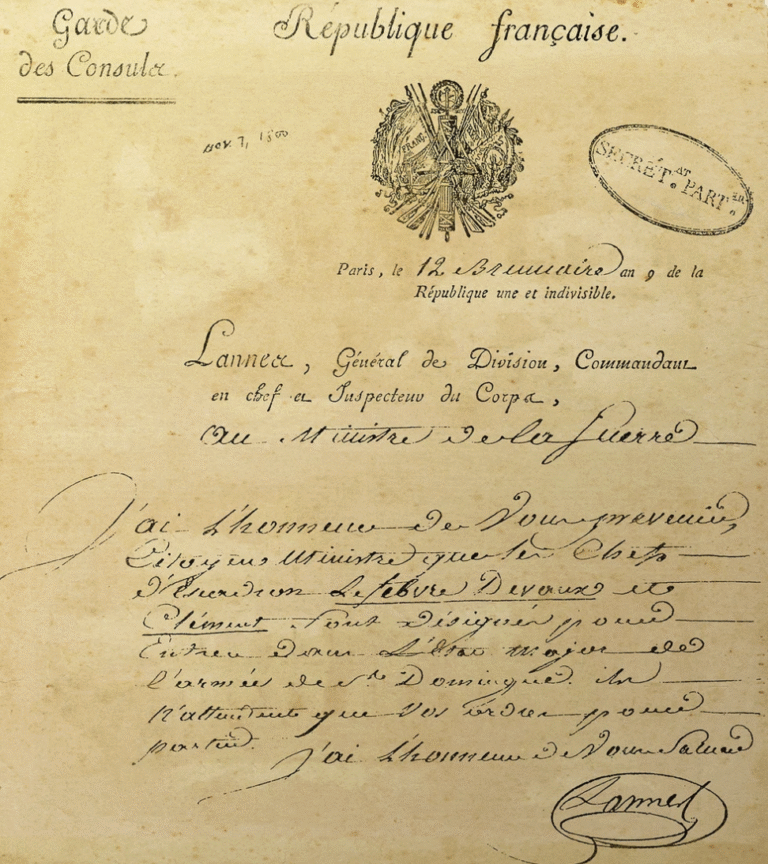 Garde
des Consuls
République française.
nov. 7, 1800
FRANÇ
SECRÉT.AT PART.ER
Paris, le 12 Brumaire an 9 de la
République une et indivisible.
Lannes, Général de Division, Commandant
en chef et Inspecteur du Corps,
Au Ministre de la Guerre
J'ai L'honneur de Vous prevenir,
Citoyen Ministre que les Chefs
d'Escadron Lefebvre Devaux et
Clément sont désignés pour
Entrer dans L'Etat major de
l'armée de St. Domingue. ils
N'attendent que Vos ordres pour
partir.
J'ai L'honneur de Vous Saluer
Lannes